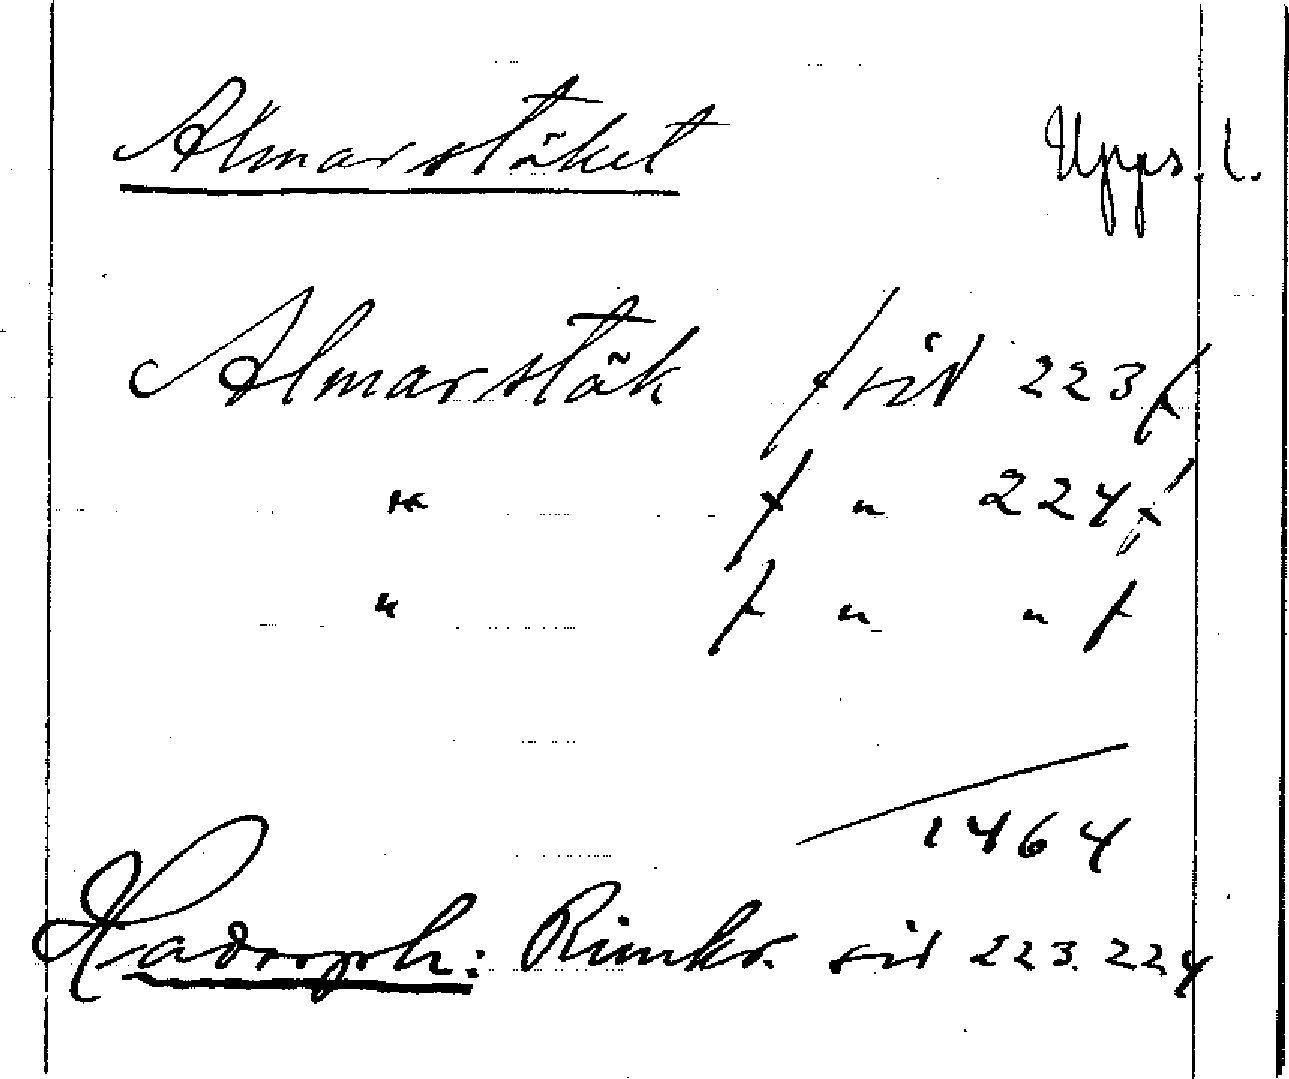 Almarstäket Upps. l.
Almarstäk / sid 223/
" / " 224/
" / " " /
1464
Hadorph: Rimkr. sid 223. 224